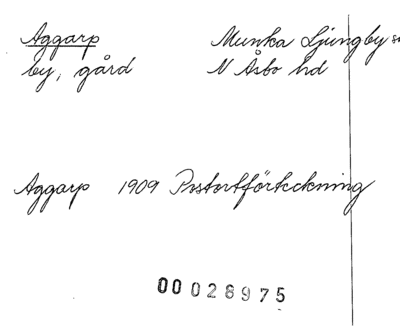 Aggarp Munka Ljungby s
by, gård N Åsbo hd
Aggarp 1909 Postortförteckning
00028975